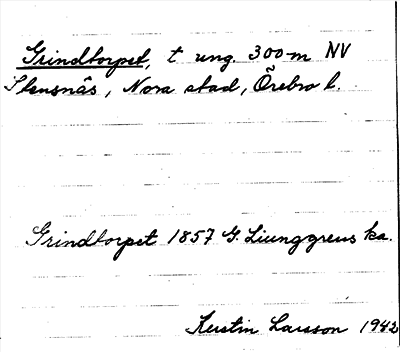 Grindtorpet, t ung. 300 m NV
Stensnäs, Nora stad, Örebro l.
Grindtorpet 1857 G. Ljunggrens ka.
Kerstin Larsson 1942